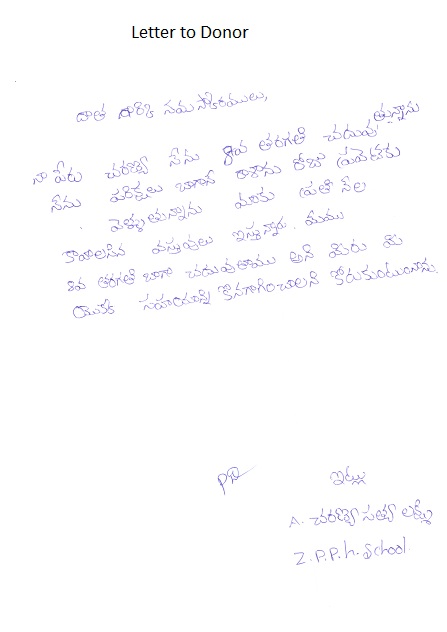 Letter to Donor
దాత గారికి నమస్కారములు,
నా పేరు చరణ్య నేను 8వ తరగతి చదువుతున్నాను
నేను పరీక్షలు బాగానే రాశాను రోజు ప్రవేటుకు
వెళ్ళుతున్నాను మాకు ప్రతి నెల
కావలసిన వస్తువులు ఇస్తున్నారు. మేము
8వ తరగతి బాగా చదువుతాము అని మీరు మీ
యొక్క సహాయాన్ని కొనసాగించాలని కోరుకుంటున్నాను.
ఇట్లు
A. చరణ్య సత్య లక్ష్మి
Z.P.P.h. School.